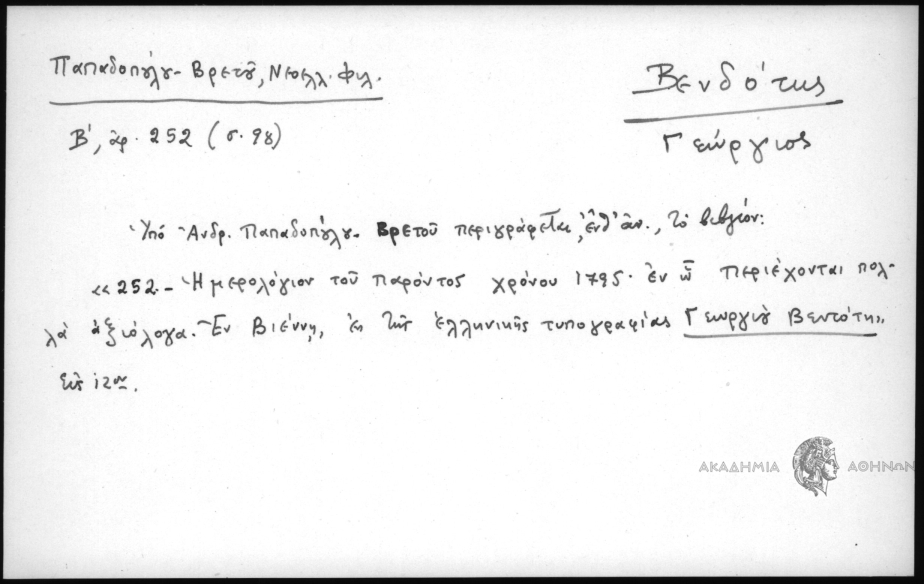 Παπαδοπούλου-Βρετοῦ, Νεοελλ. Φιλ.
Βενδότης
Β', ἀρ. 252 (σ. 98)
Γεώργιος
Ὑπό Ἀνδρ. Παπαδοπούλου-Βρετοῦ περιγράφεται, ἔνθ' ἀν., τό βιβλίον:
«252.- Ἡμερολόγιον τοῦ παρόντος χρόνου 1795. ἐν ᾧ περιέχονται πολ-
λά ἀξιόλογα. Ἐν Βιέννῃ, ἐκ τῆς ἑλληνικῆς τυπογραφίας Γεωργίου Βεντότη».
Εἰς 12ον.
ΑΚΑΔΗΜΙΑ ΑΘΗΝΩΝ